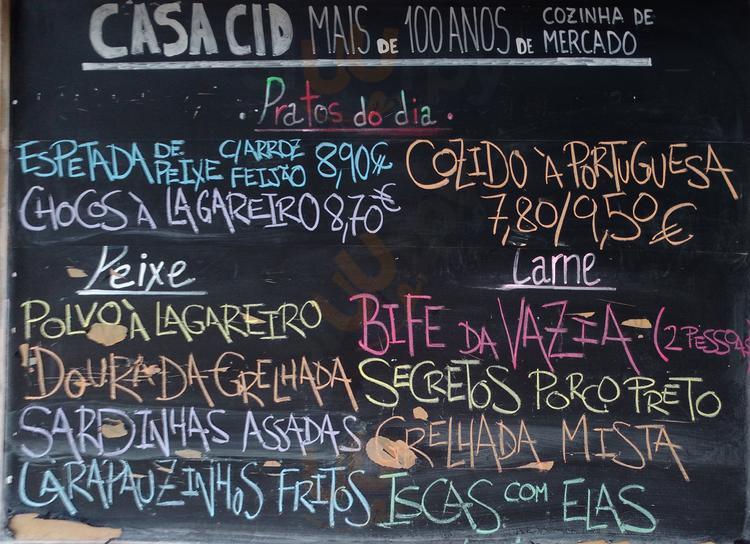 CASA CID MAIS DE 100 ANOS DE COZINHA DE MERCADO
Pratos do dia
ESPETADA DE PEIXE C/ARROZ FEIJÃO 8,90€
CHOCOS À LAGAREIRO 8,70€
COZIDO À PORTUGUESA
7,80/9,50€
Peixe
POLVO À LAGAREIRO
DOURADA GRELHADA
SARDINHAS ASSADAS
CARAPAUZINHOS FRITOS
Carne
BIFE DA VAZIA (2 PESSOAS
SECRETOS PORCO PRETO
GRELHADA MISTA
ISCAS COM ELAS